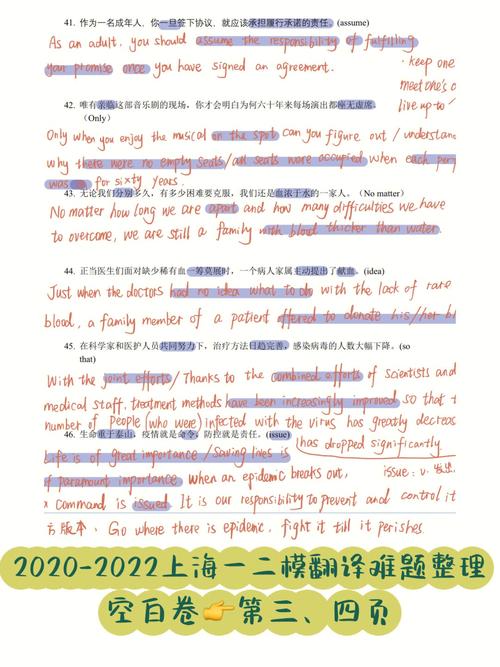 41. 作为一名成年人,你一旦签下协议,就应该承担履行承诺的责任。(assume)
As an adult, you should assume the responsibility of fulfilling
your promise once you have signed an agreement.
· keep one
meet one's
live up to
42. 唯有亲临这部音乐剧的现场,你才会明白为何六十年来每场演出都座无虚席。
(Only)
Only when you enjoy the musical on the spot can you figure out / understand
why there were no empty seats/all seats were occupied when each
was on for sixty years.
43. 无论我们分别多久,有多少困难要克服,我们还是血浓于水的一家人。(No matter)
No matter how long we are apart and how many difficulties we have
to overcome, we are still a family with blood thicker than water.
44. 正当医生们面对缺少稀有血一筹莫展时,一个病人家属主动提出了献血。(idea)
Just when the doctors had no idea what to do with the lack of rare
blood, a family member of a patient offered to donate his/her bl
45. 在科学家和医护人员共同努力下,治疗方法日趋完善,感染病毒的人数大幅下降。(so
that)
With the joint efforts/ Thanks to the combined efforts of scientists and
medical staff, treatment methods have been increasingly improved so that
number of people (who were) infected with the virus has greatly decreas
46. 生命重于泰山,疫情就是命令,防控就是责任。(issue)
has dropped significantly
Life is of great importance / Saving lives is
of paramount importance. When an epidemic breaks out,
issue: v. 发出
command is issued. It is our responsibility to prevent and control it
方版本. Go where there is epidemic, fight it till it perishes
2020-2022上海一二模翻译难题整理
空白卷👉第三、四页